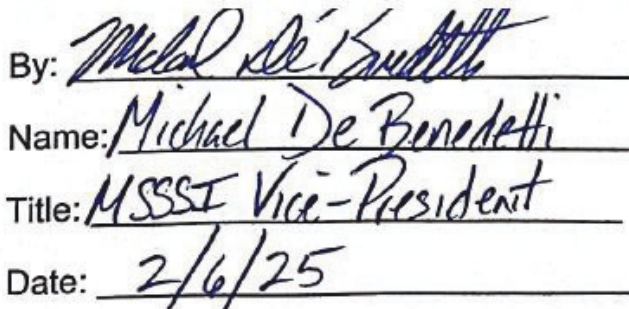 By: Michael De Benedetti
Name: Michael De Benedetti
Title: MSSSI Vice-President
Date: 2/6/25